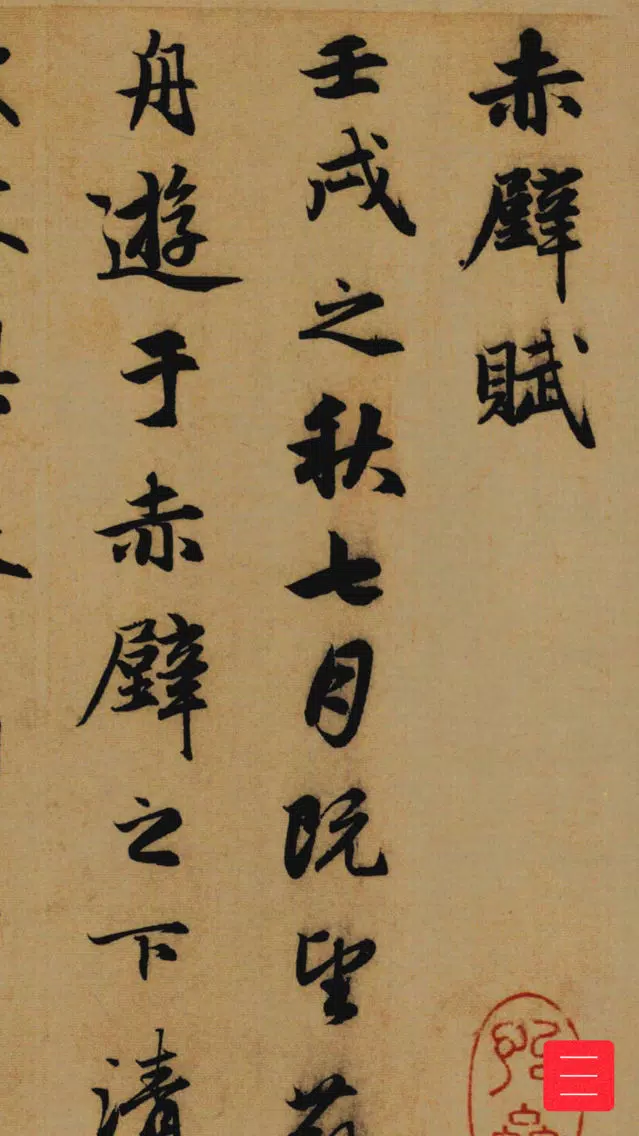 赤壁賦
壬戌之秋七月既望蘇
舟遊于赤壁之下清